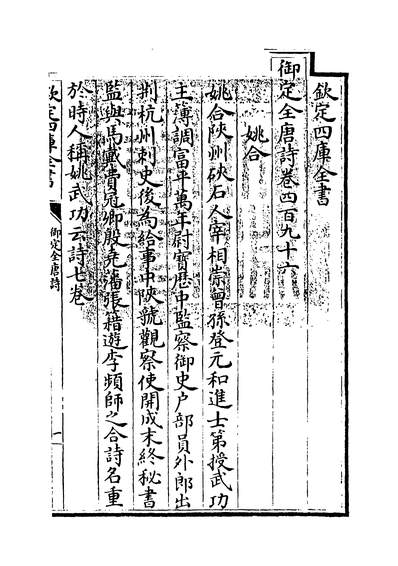 欽定四庫全書
御定全唐詩卷四百九十六
姚合
姚合陜州硤石人宰相崇曾孫登元和進士第授武功
主簿調富平萬年尉寶歴中監察御史户部員外郎出
荆杭州刺史後為給事中陜虢觀察使開成末終秘書
監與馬戴費冠卿殷堯藩張籍遊李頻師之合詩名重
於時人稱姚武功云詩七卷
欽定四庫全書
御定全唐詩
一